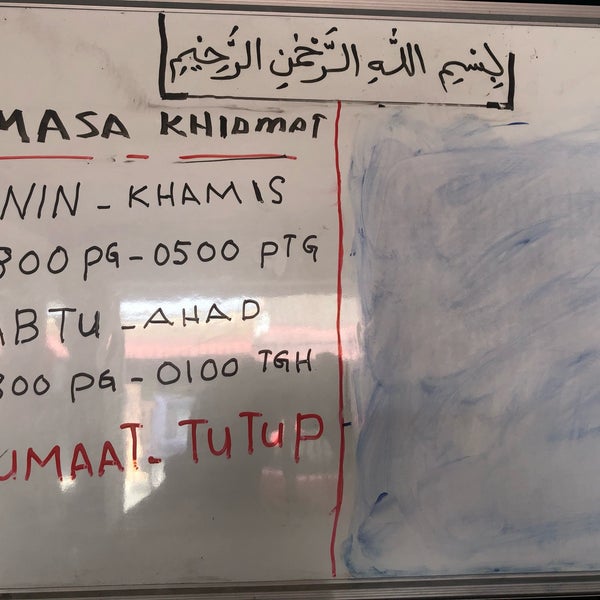 بِسْمِ اللَّهِ الرَّحْمٰنِ الرَّحِيْمِ
MASA KHIDMAT
NIN - KHAMIS
800 PG - 0500 PTG
ABTU - AHAD
800 PG - 0100 TGH
UMAAT - TUTUP